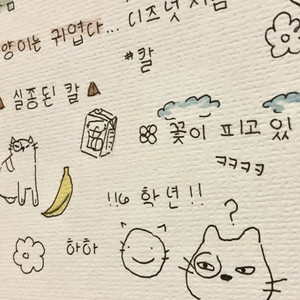 디즈넛 지금
양이는 귀엽다...
#칼
실종된 칼
꽃이 피고 있
ㅋㅋㅋㅋ
!!6 학년!!
?
하하